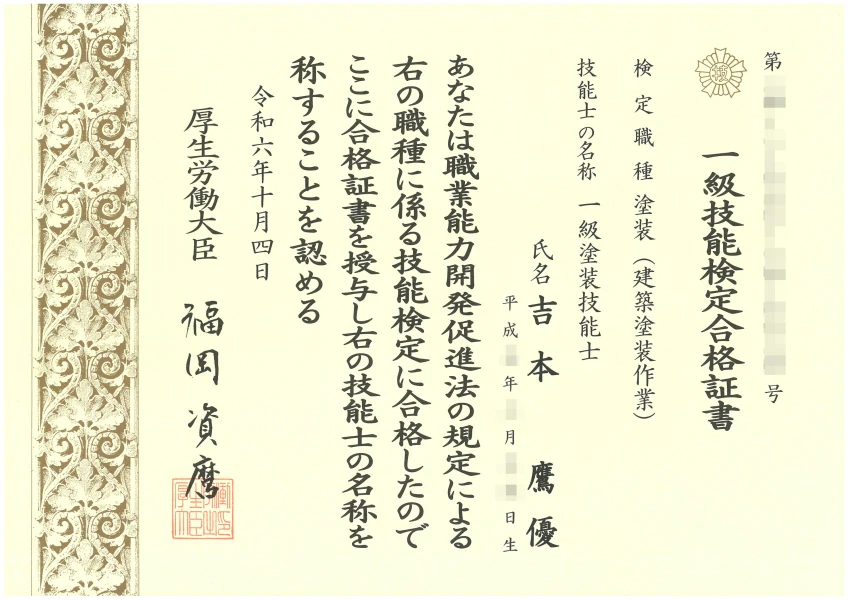 第 号
一級技能検定合格証書
検定職種 塗装（建築塗装作業）
技能士の名称 一級塗装技能士
氏名 吉本 鷹優
平成 年 月 日生
あなたは職業能力開発促進法の規定による
右の職種に係る技能検定に合格したので
ここに合格証書を授与し右の技能士の名称を
称することを認める
令和六年十月四日
厚生労働大臣 福岡資麿